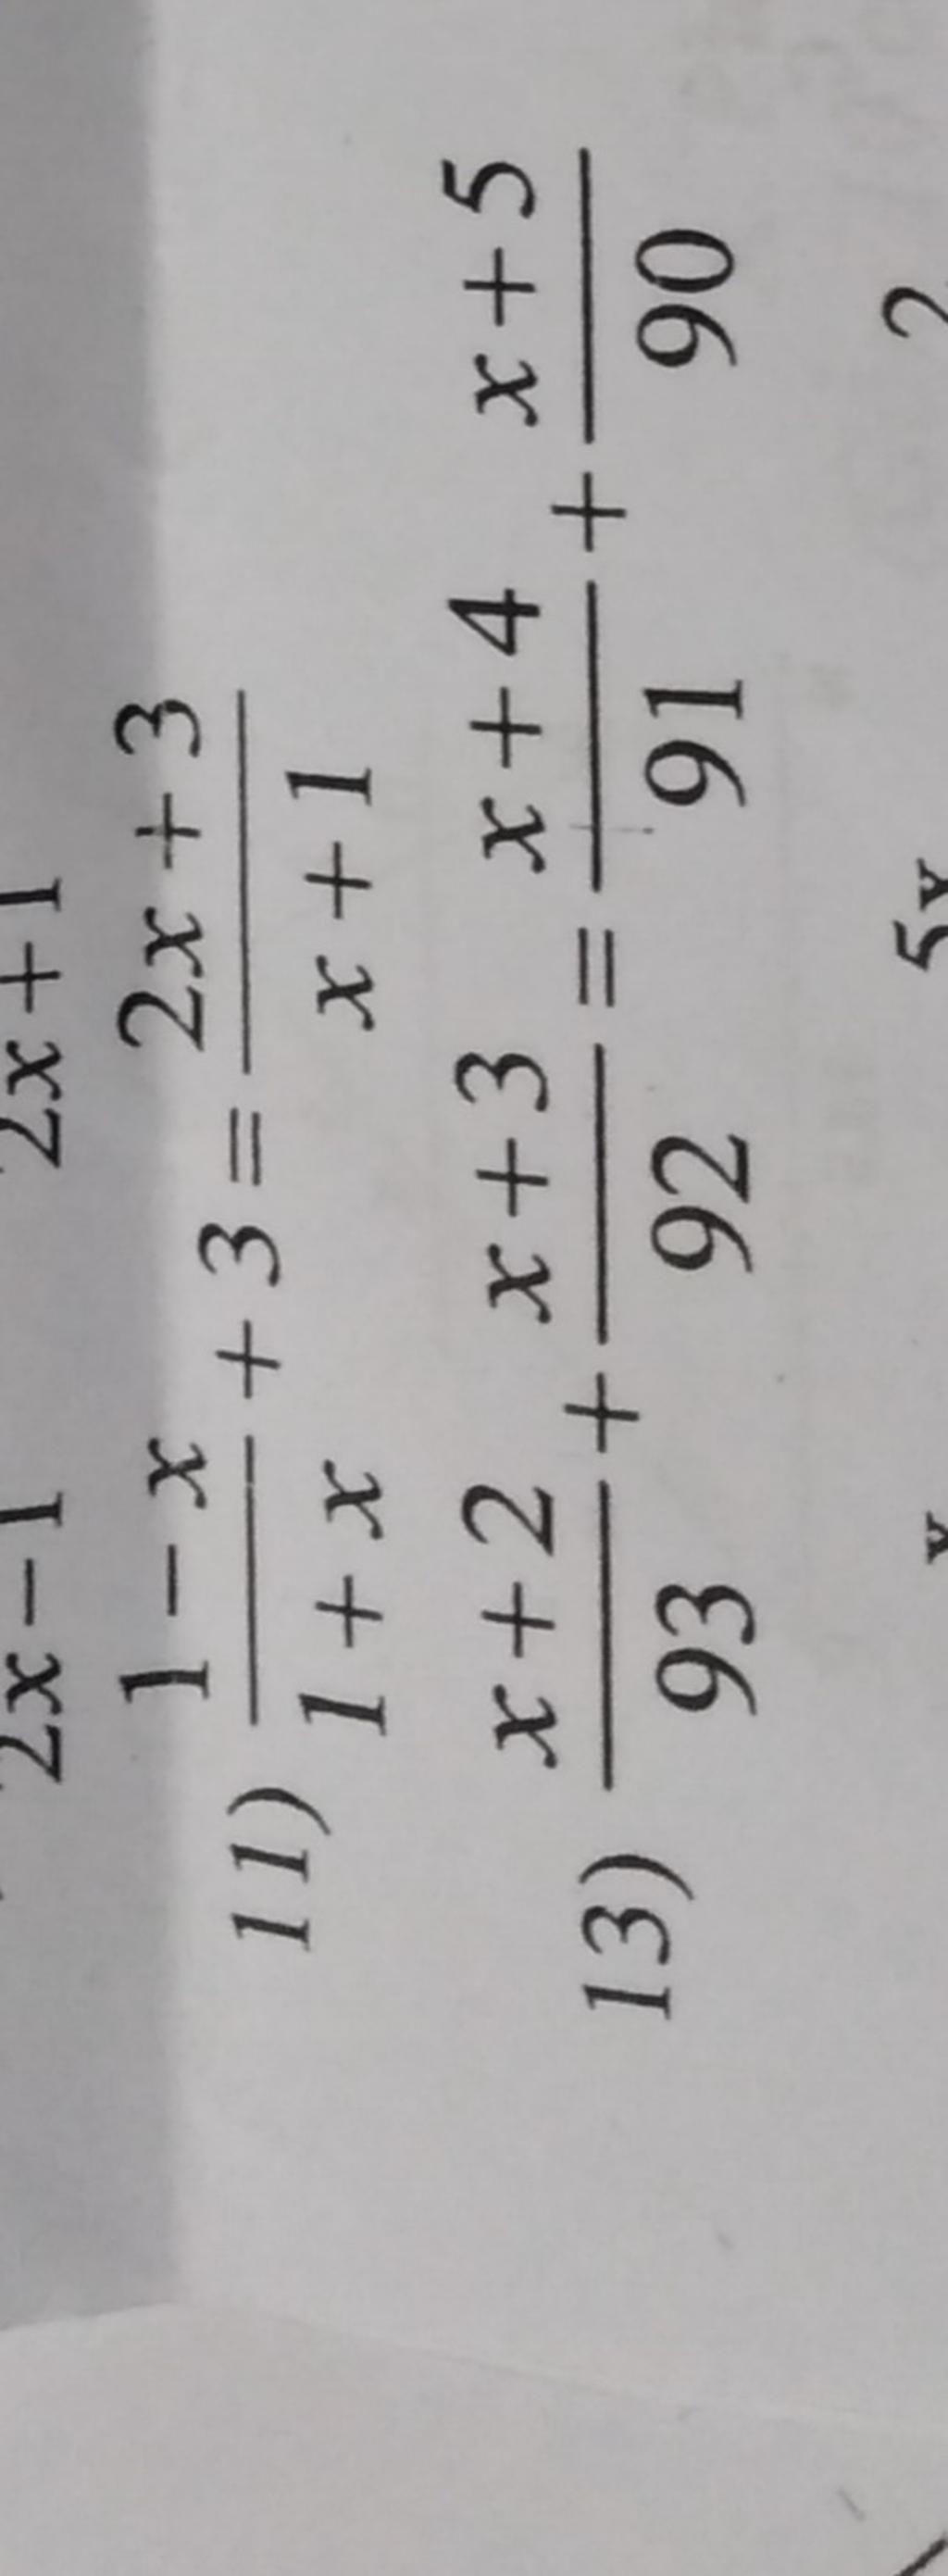 2x − 1 2x + 1
11) (1 − x)/(1 + x) + 3 = (2x + 3)/(x + 1)
13) (x + 2)/93 + (x + 3)/92 = (x + 4)/91 + (x + 5)/90
x 5x 2